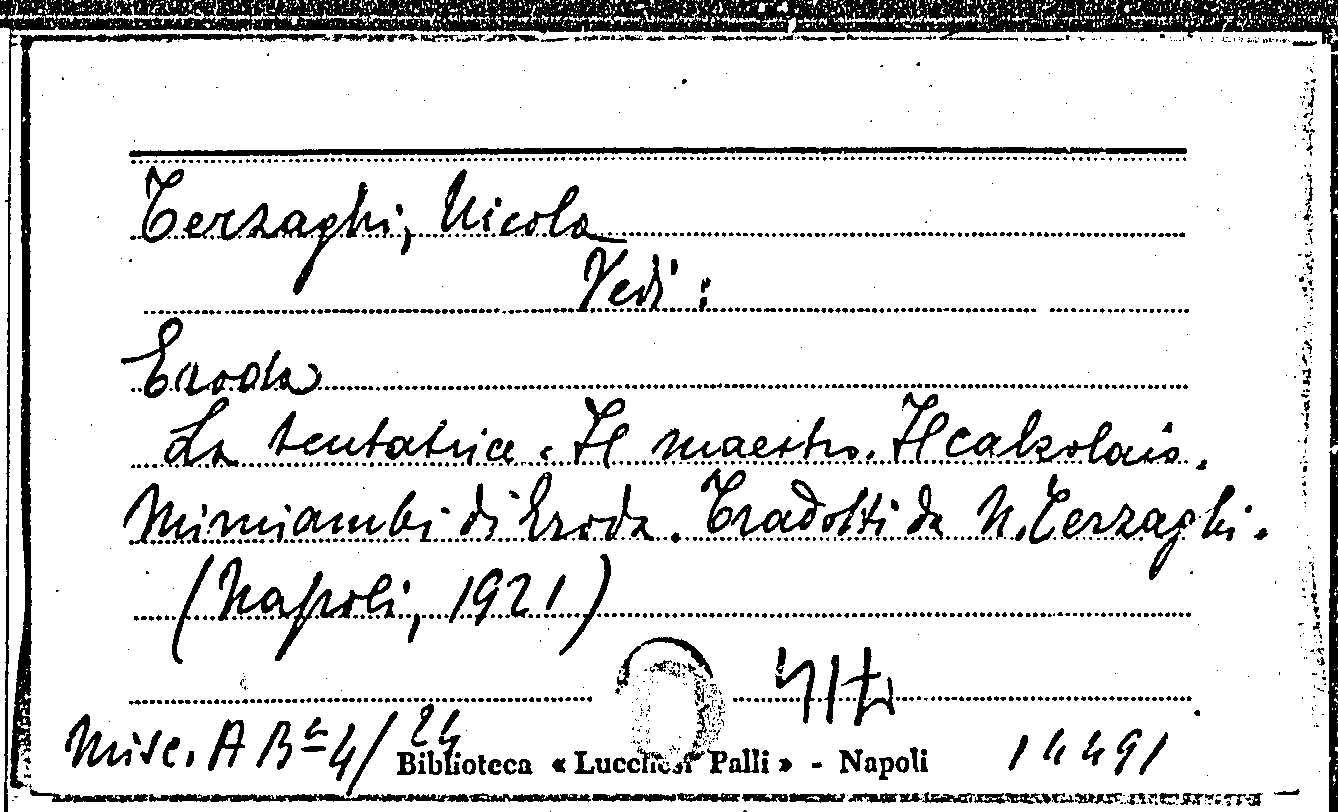 Terzaghi, Nicola
Vedi :
Eroda
La tentatrice. Il maestro. Il calzolaio.
Mimiambi di Eroda. Tradotti da N. Terzaghi.
(Napoli, 1921)
Misc. A Bª 4/24
Biblioteca « Lucchesi Palli » - Napoli
14491